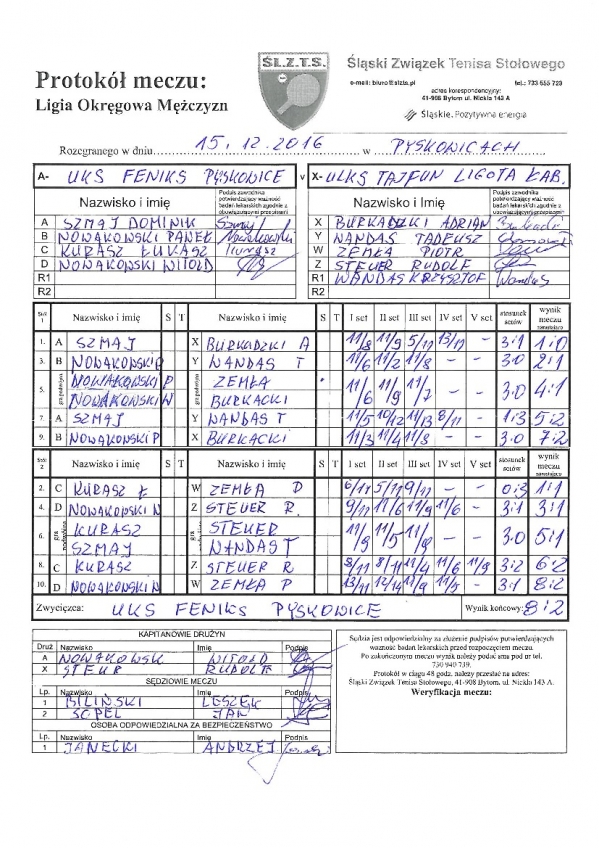 Protokół meczu:
Ligia Okręgowa Mężczyzn
ŚL.Z.T.S.
Śląski Związek Tenisa Stołowego
e-mail: biuro@slzts.pl tel.: 733 555 729
adres korespondencyjny:
41-908 Bytom ul. Nickla 143 A
Śląskie. Pozytywna energia
Rozegranego w dniu 15.12.2016 w PYSKOWICACH
A- UKS FENIKS PYSKOWICE v X- ULKS TAJFUN LIGOTA ŁAB.
Nazwisko i Imię Podpis zawodnika potwierdzający ważność badań lekarskich zgodnie z obowiązującymi przepisami Nazwisko i Imię Podpis zawodnika potwierdzający ważność badań lekarskich zgodnie z obowiązującymi przepisami
A SZMAJ DOMINIK Szmaj X BURKADZKI ADRIAN
B NOWAKOWSKI PAWEŁ Nowakowski Y WANDAS TADEUSZ
C KURASZ ŁUKASZ Kurasz W ZEMŁA PIOTR
D NOWAKOWSKI WITOLD Z STEUER RUDOLF
R1 R1 WANDAS KRZYSZTOF Wandas
R2 R2
Stół 1 Nazwisko i imię S T Nazwisko i imię S T I set II set III set IV set V set stosunek setów wynik meczu narastająco
1. A SZMAJ X BURKADZKI A 11/8 11/9 5/11 13/11 - 3:1 1:0
3. B NOWAKOWSKI P Y WANDAS T 11/6 11/2 11/8 - - 3:0 2:1
5. gra podwójna NOWAKOWSKI P NOWAKOWSKI W gra podwójna ZEMŁA BURKACKI 11/6 11/9 11/7 - - 3:0 4:1
7. A SZMAJ Y WANDAS T 11/5 10/12 11/13 8/11 - 1:3 5:2
9. B NOWAKOWSKI P X BURKACKI 11/3 11/4 11/8 - - 3:0 7:2
Stół 2 Nazwisko i imię S T Nazwisko i imię S T I set II set III set IV set V set stosunek setów wynik meczu narastająco
2. C KURASZ Ł W ZEMŁA P 6/11 5/11 9/11 - - 0:3 1:1
4. D NOWAKOWSKI W Z STEUER R. 9/11 11/6 11/6 11/6 - 3:1 3:1
6. gra podwójna KURASZ SZMAJ gra podwójna STEUER WANDAS T 11/9 11/5 11/8 - - 3:0 5:1
8. C KURASZ Z STEUER R 8/11 8/11 11/4 11/6 11/9 3:2 6:2
10. D NOWAKOWSKI W W ZEMŁA P 13/11 12/14 11/9 11/5 - 3:1 8:2
Zwycięzca: UKS FENIKS PYSKOWICE Wynik końcowy: 8:2
KAPITANOWIE DRUŻYN
Druż Nazwisko Imię Podpis
A NOWAKOWSK WITOLD
X STEUR RUDOLF
SĘDZIOWIE MECZU
Lp. Nazwisko Imię Podpis
1 BILIŃSKI LESZEK
2 SOPEL JAN
OSOBA ODPOWIEDZIALNA ZA BEZPIECZEŃSTWO
Lp. Nazwisko Imię Podpis
1 JANECKI ANDRZEJ
Sędzia jest odpowiedzialny za złożenie podpisów potwierdzających
ważność badań lekarskich przed rozpoczęciem meczu.
Po zakończonym meczu wynik należy podać sms pod nr tel.
730 940 739.
Protokół w ciągu 48 godz. należy przesłać na adres:
Śląski Związek Tenisa Stołowego, 41-908 Bytom, ul. Nickla 143 A.
Weryfikacja meczu: